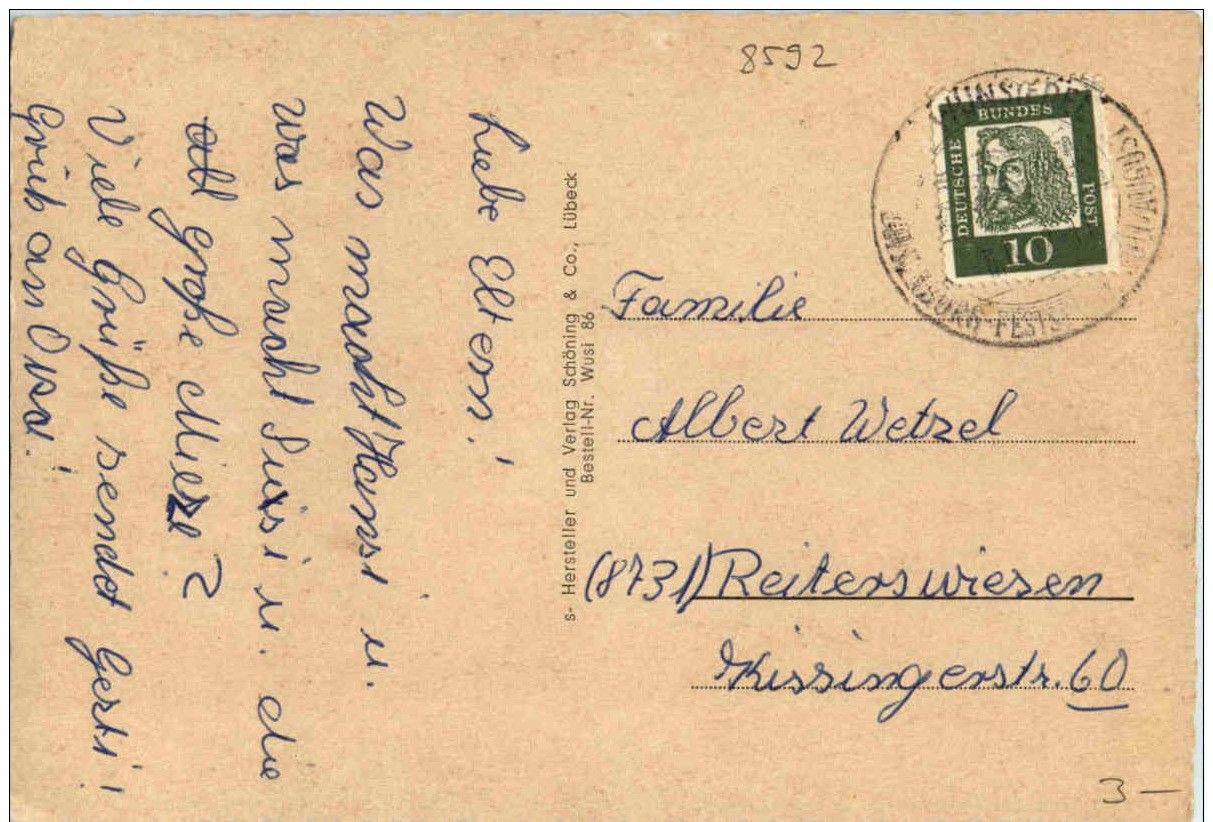 8592
Liebe Eltern!
Was macht Hansi u.
was macht Susi u. die
große Mieze?
Viele Grüße sendet Gerti!
Gruß an Oma!
s- Hersteller und Verlag Schöning & Co., Lübeck
Bestell-Nr. Wusi 86
DEUTSCHE BUNDES POST
10
WUNSIEDEL
BURG-FESTS
Familie
Albert Wetzel
(8731) Reiterswiesen
Kissingerstr. 60
3 —